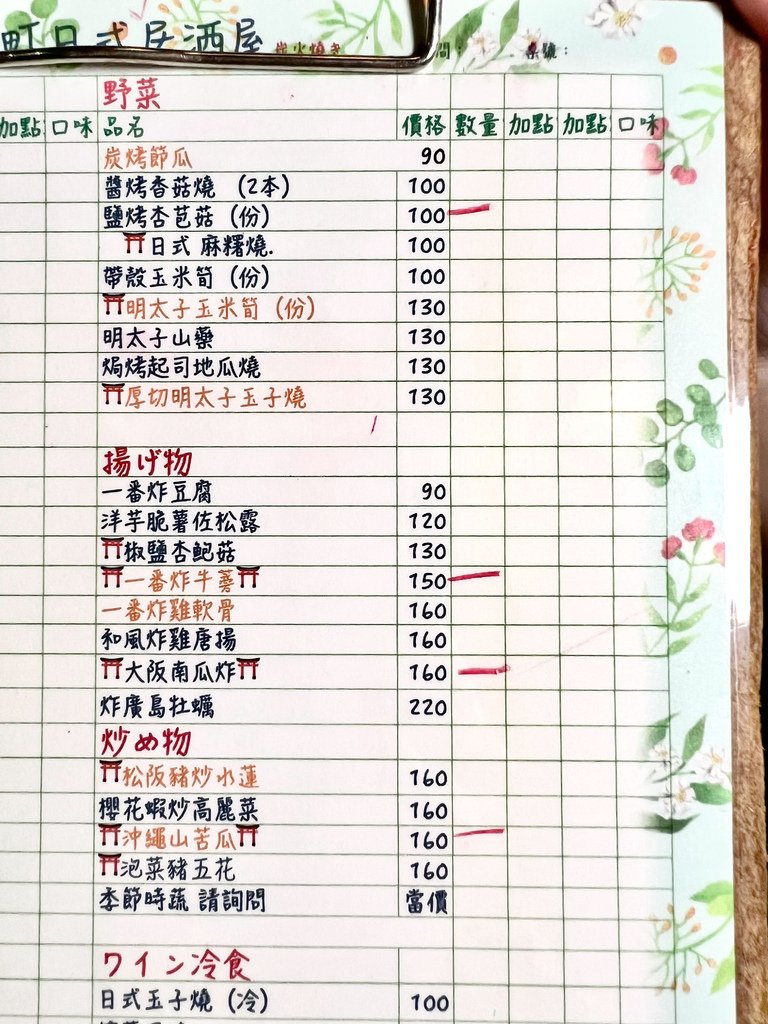 町日式居酒屋 炭火燒き
野菜
加點 口味 品名 價格 數量 加點 加點 口味
炭烤節瓜 90
醬烤香菇燒 (2本) 100
鹽烤杏芭菇 (份) 100
⛩日式 麻糬燒. 100
帶殼玉米筍 (份) 100
⛩明太子玉米筍 (份) 130
明太子山藥 130
焗烤起司地瓜燒 130
⛩厚切明太子玉子燒 130
揚げ物
一番炸豆腐 90
洋芋脆薯佐松露 120
⛩椒鹽杏鮑菇 130
⛩一番炸牛蒡⛩ 150
一番炸雞軟骨 160
和風炸雞唐揚 160
⛩大阪南瓜炸⛩ 160
炸廣島牡蠣 220
炒め物
⛩松阪豬炒水蓮 160
櫻花蝦炒高麗菜 160
⛩沖繩山苦瓜⛩ 160
⛩泡菜豬五花 160
季節時蔬 請詢問 當價
ワイン冷食
日式玉子燒 (冷) 100